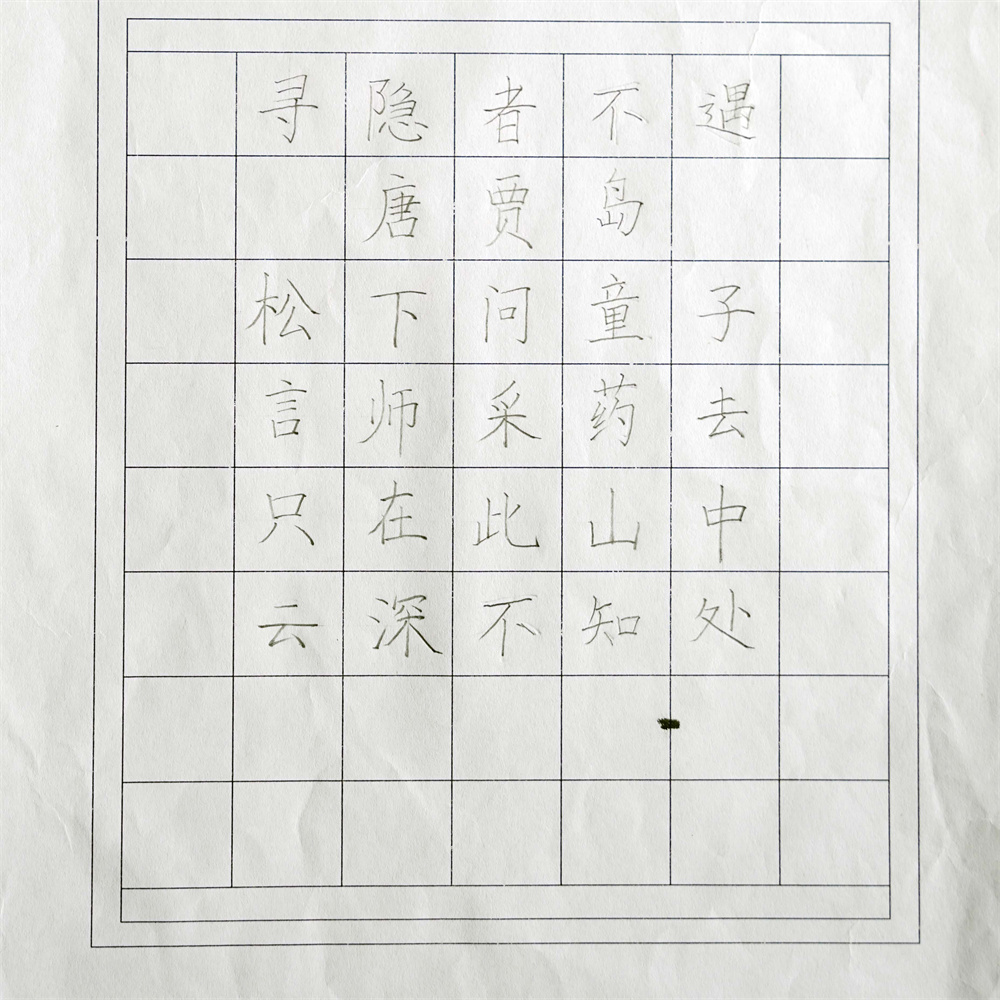 寻隐者不遇
唐贾岛
松下问童子
言师采药去
只在此山中
云深不知处